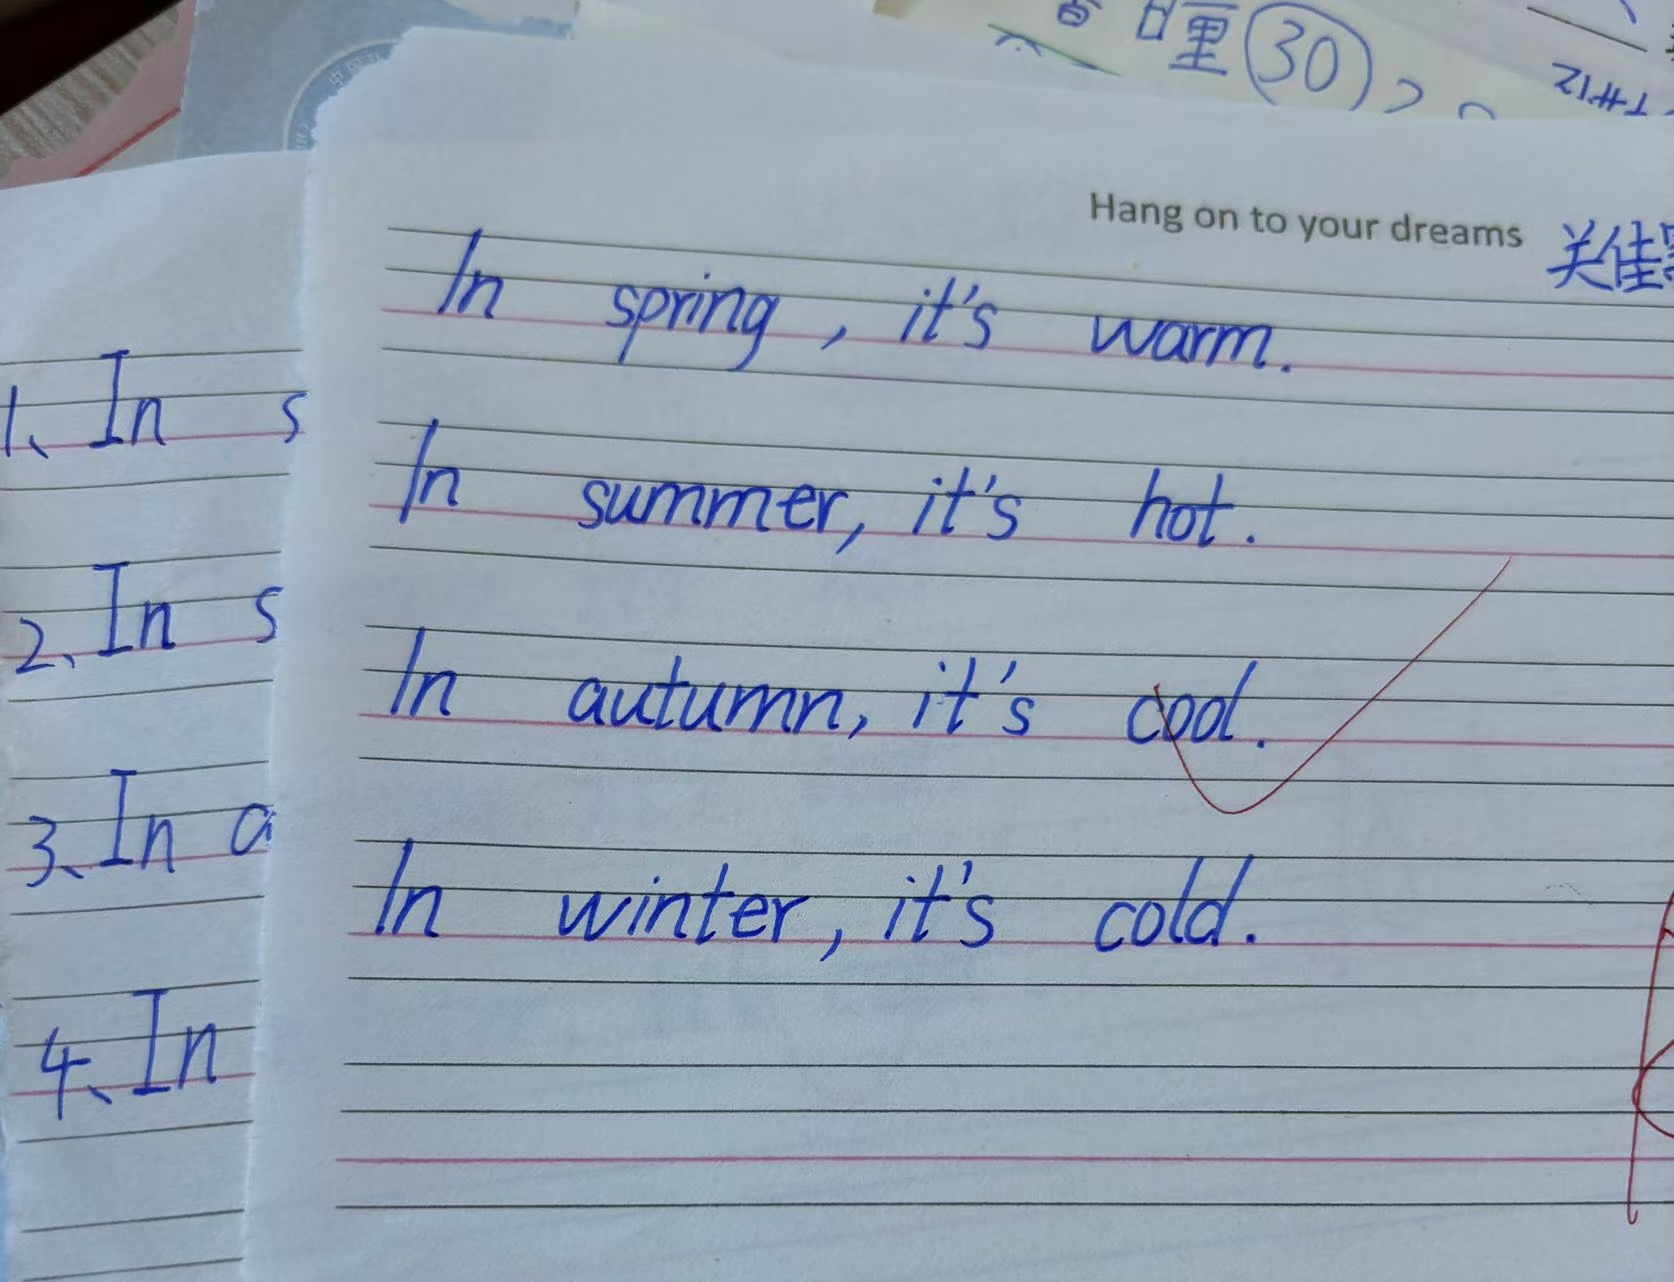 暄 30
Hang on to your dreams 关佳
In spring, it's warm.
In summer, it's hot.
In autumn, it's cool.
In winter, it's cold.
1、In s
2、In s
3、In a
4、In